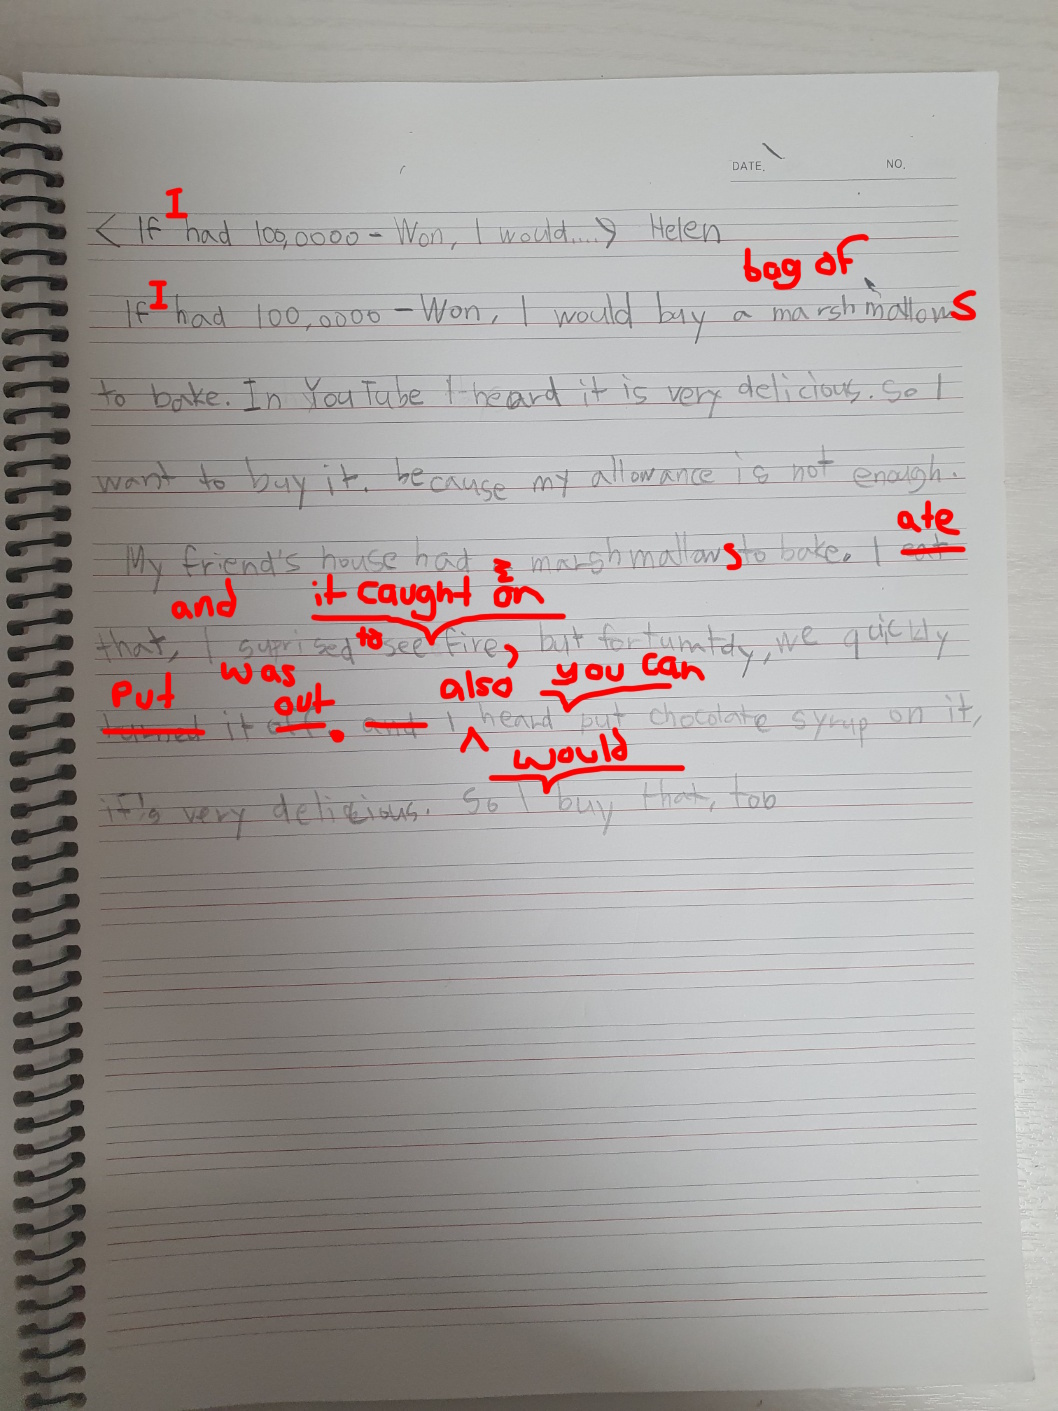 DATE. NO.
I
< If had 100,0000 - Won, I would....> Helen
bag of
If I had 100,0000 - Won, I would buy a marshmallows
to bake. In YouTube I heard it is very delicious. So I
want to buy it. because my allowance is not enough.
ate
My friend's house had a marshmallows to bake. I eat
and it caught on
that, I suprised to see fire, but fortunatdy, we quickly
was
put out also you can
turned it off. and I heard put chocolate syrup on it,
would
it's very delicious. So I buy that, too